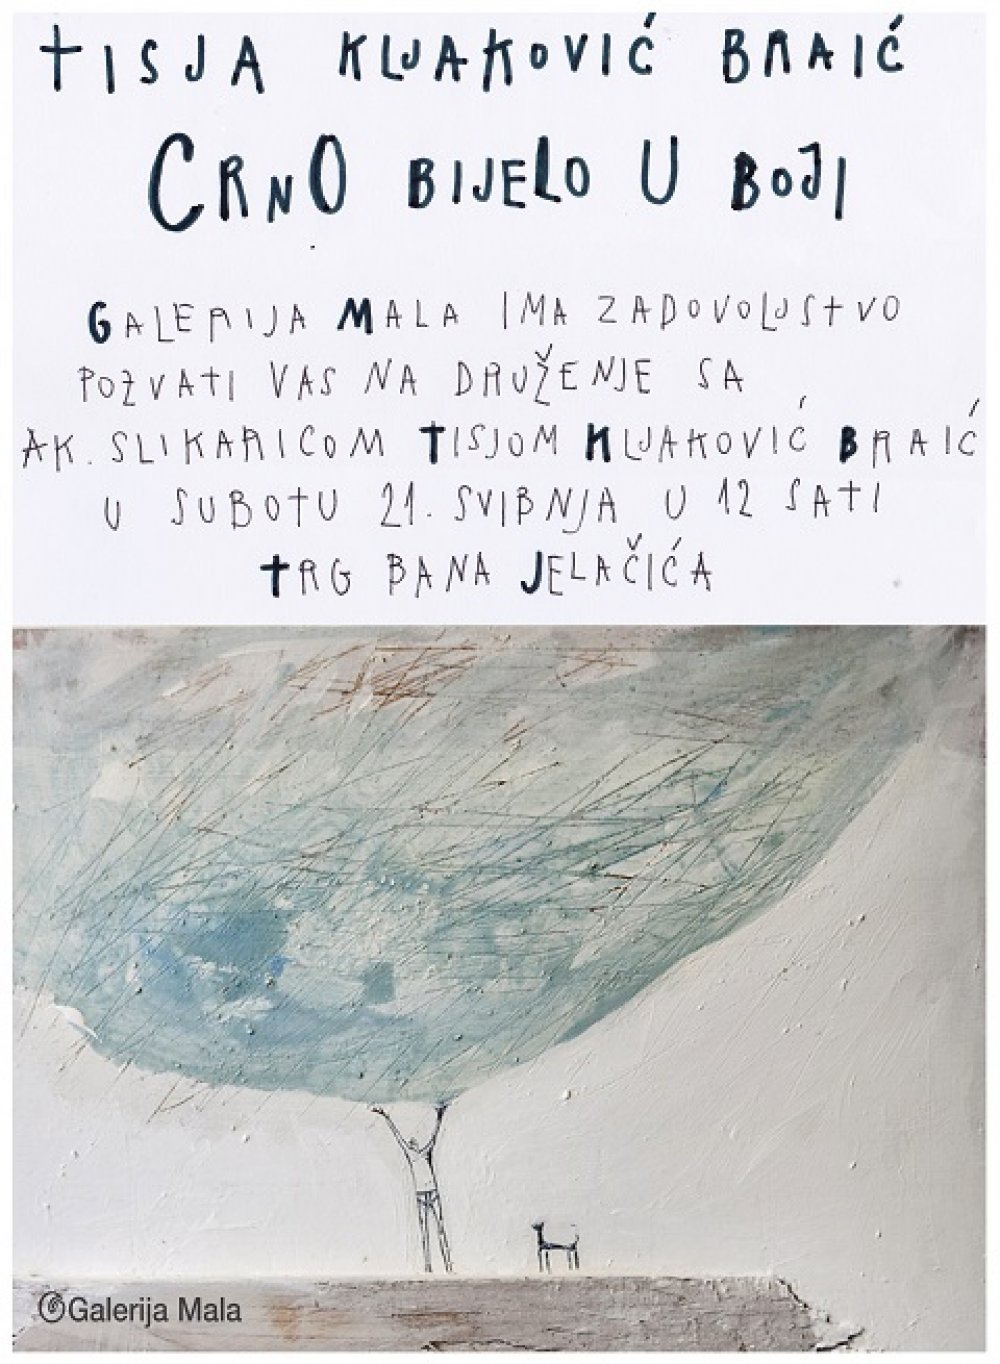 TISJA KLJAKOVIĆ BRAIĆ
CRNO BIJELO U BOJI
GALERIJA MALA IMA ZADOVOLJSTVO
POZVATI VAS NA DRUŽENJE SA
AK. SLIKARICOM TISJOM KLJAKOVIĆ BRAIĆ
U SUBOTU 21. SVIBNJA U 12 SATI
TRG BANA JELAČIĆA
Galerija Mala